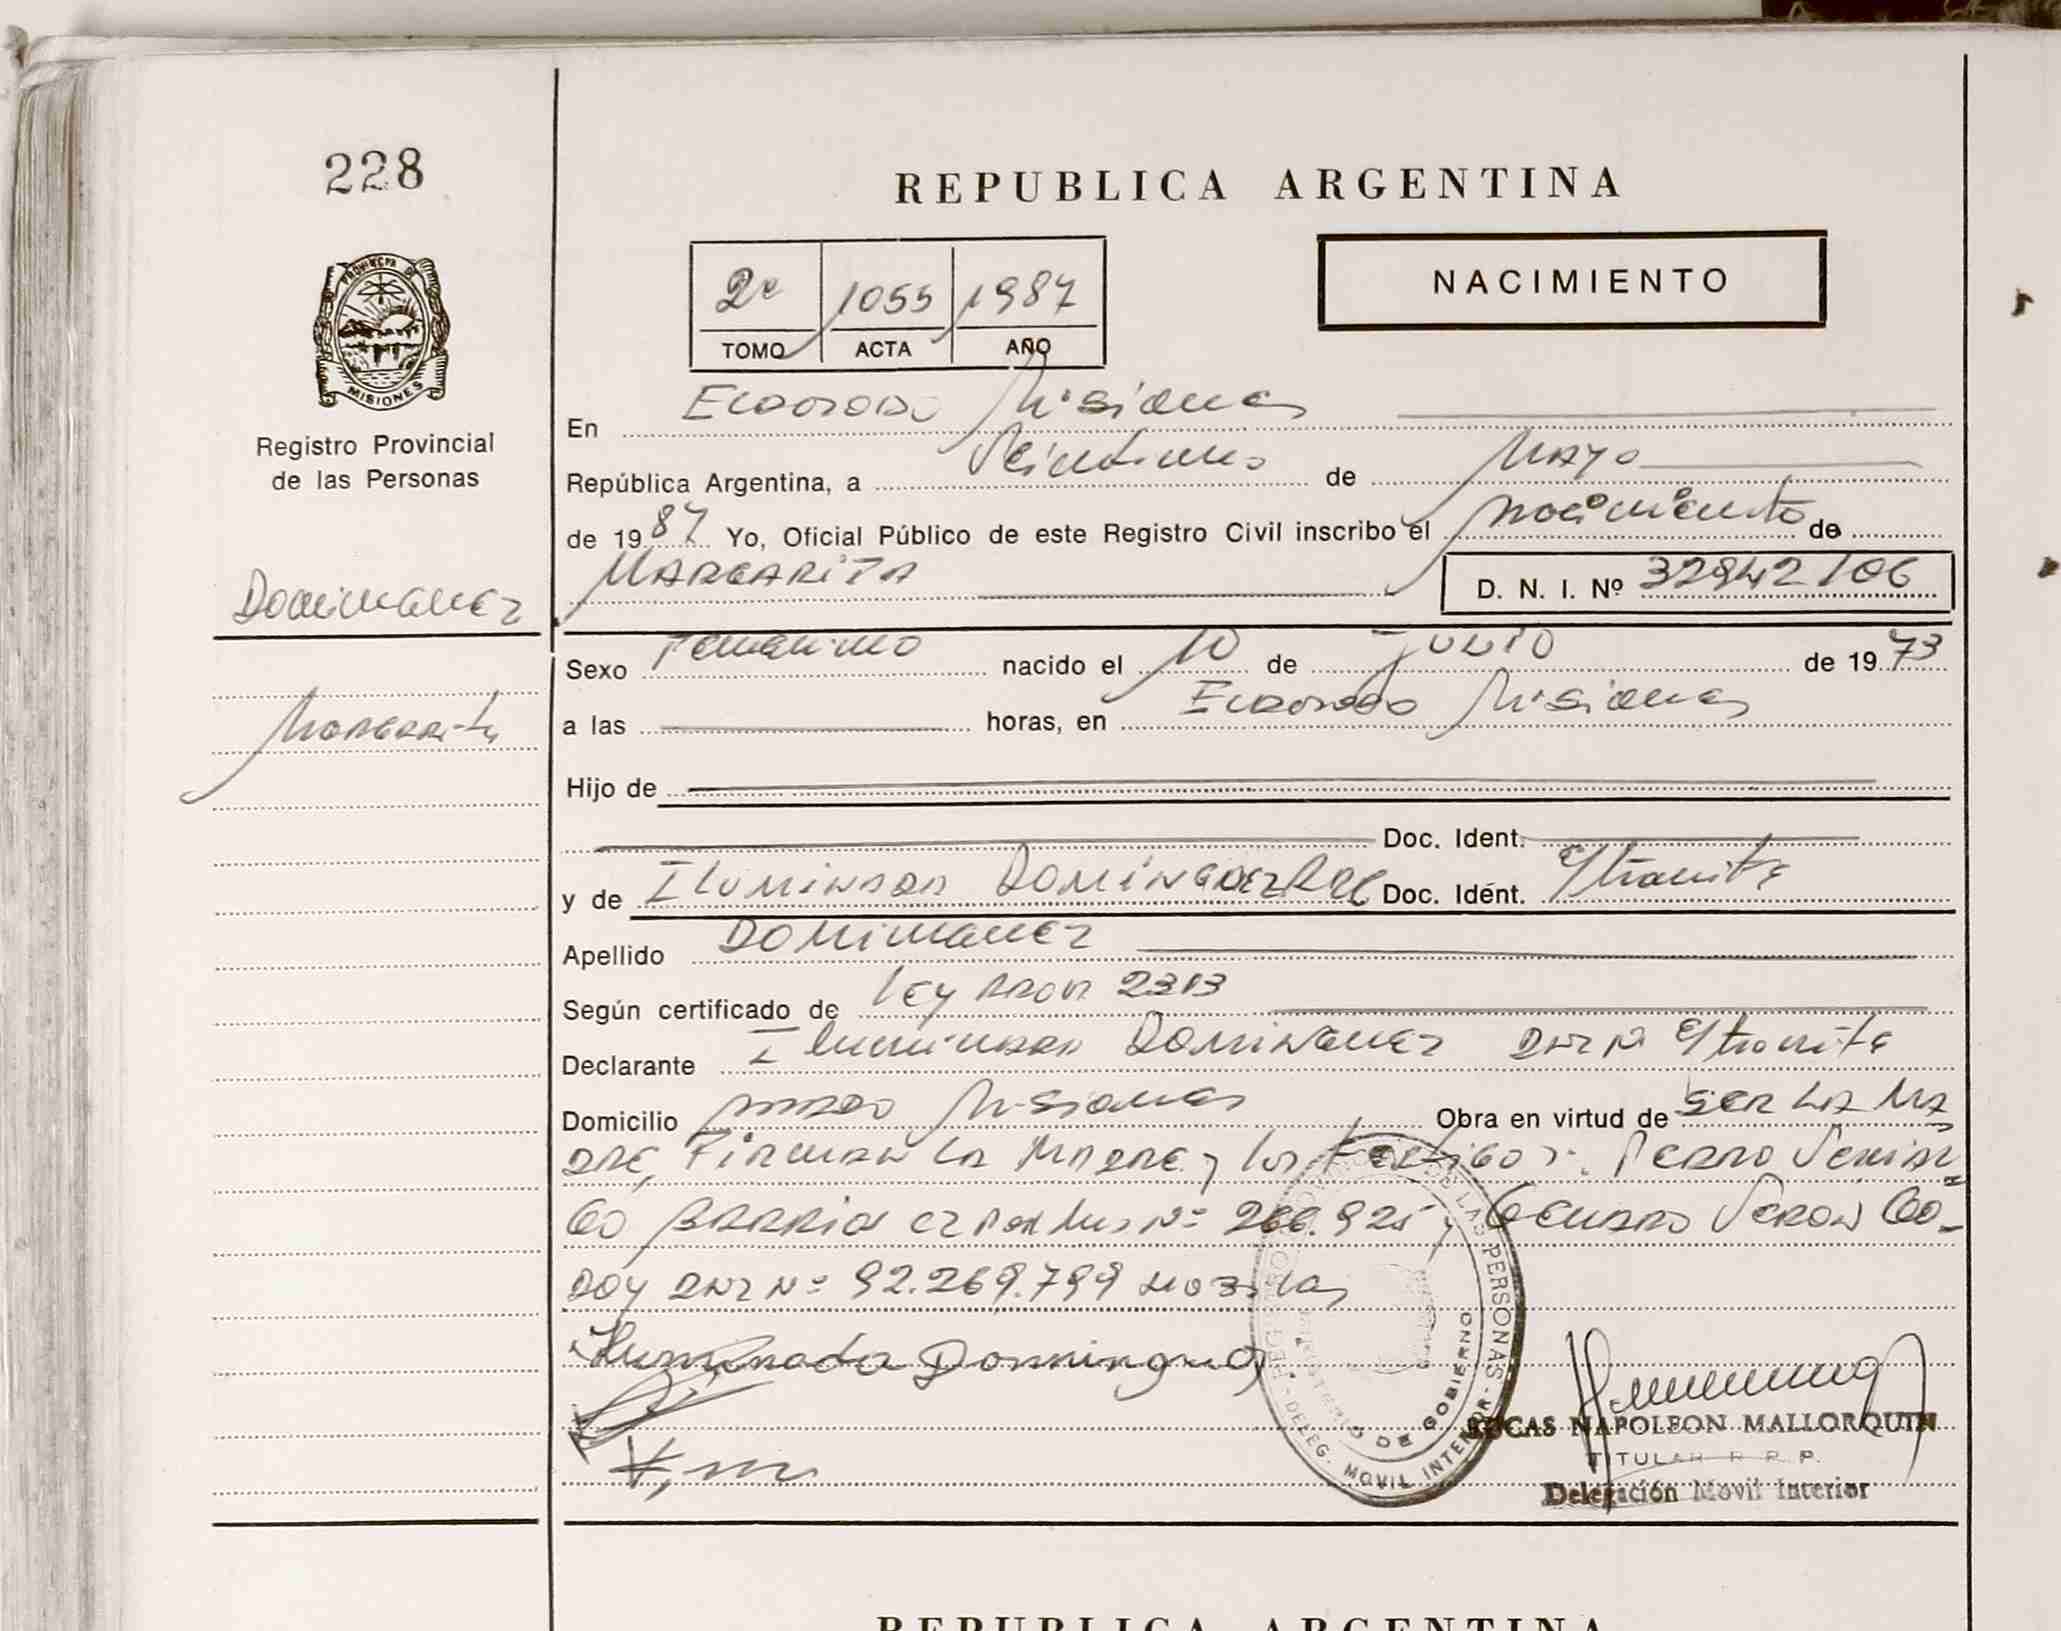 228
REPUBLICA ARGENTINA
2º 1055 1987
TOMO ACTA AÑO
NACIMIENTO
PROVINCIA DE
MISIONES
Registro Provincial
de las Personas
En Eldorado Misiones
República Argentina, a Veintiuno de Mayo
de 1987 Yo, Oficial Público de este Registro Civil inscribo el nacimiento de
MARGARITA D. N. I. Nº 32942106
Dominguez
Margarita
Sexo Femenino nacido el 10 de JULIO de 1973
a las horas, en Eldorado Misiones
Hijo de
Doc. Ident.
y de ILUMINADA DOMINGUEZ Doc. Idént. e/tramite
Apellido DOMINGUEZ
Según certificado de Ley 2313
Declarante Iluminada Dominguez DNI Nº e/tramite
Domicilio Misiones Obra en virtud de SER LA MA
DRE, Firman la MADRE y los testigos: PEDRO
Nº 266.925 y VERON GO-
DOY DNI Nº 92.269.799
Iluminada Dominguez
REGISTRO PROVINCIAL DE LAS PERSONAS
MINISTERIO DE GOBIERNO
- DELEG. MOVIL INTERIOR -
LUCAS NAPOLEON MALLORQUIN
TITULAR R. R. P.
Delegación Movil Interior
REPUBLICA ARGENTINA